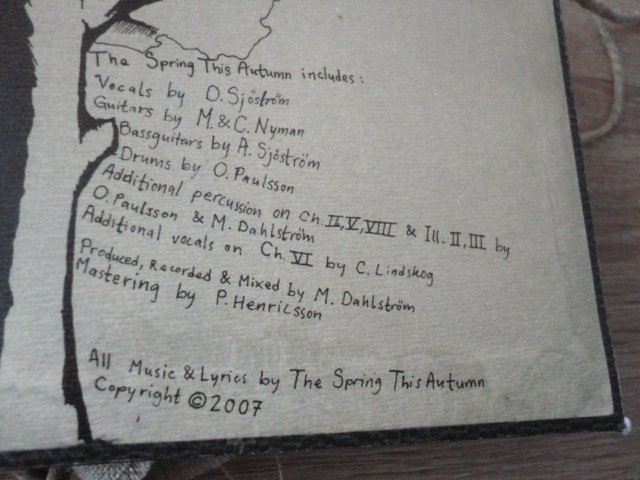 The Spring This Autumn includes:
Vocals by O. Sjöström
Guitars by M. & C. Nyman
Bassguitars by A. Sjöström
Drums by O. Paulsson
Additional percussion on Ch. II, V, VIII & Ill. II, III by
O. Paulsson & M. Dahlström
Additional vocals on Ch. VI by C. Lindskog
Produced, Recorded & Mixed by M. Dahlström
Mastering by P. Henricsson
All Music & Lyrics by The Spring This Autumn
Copyright © 2007